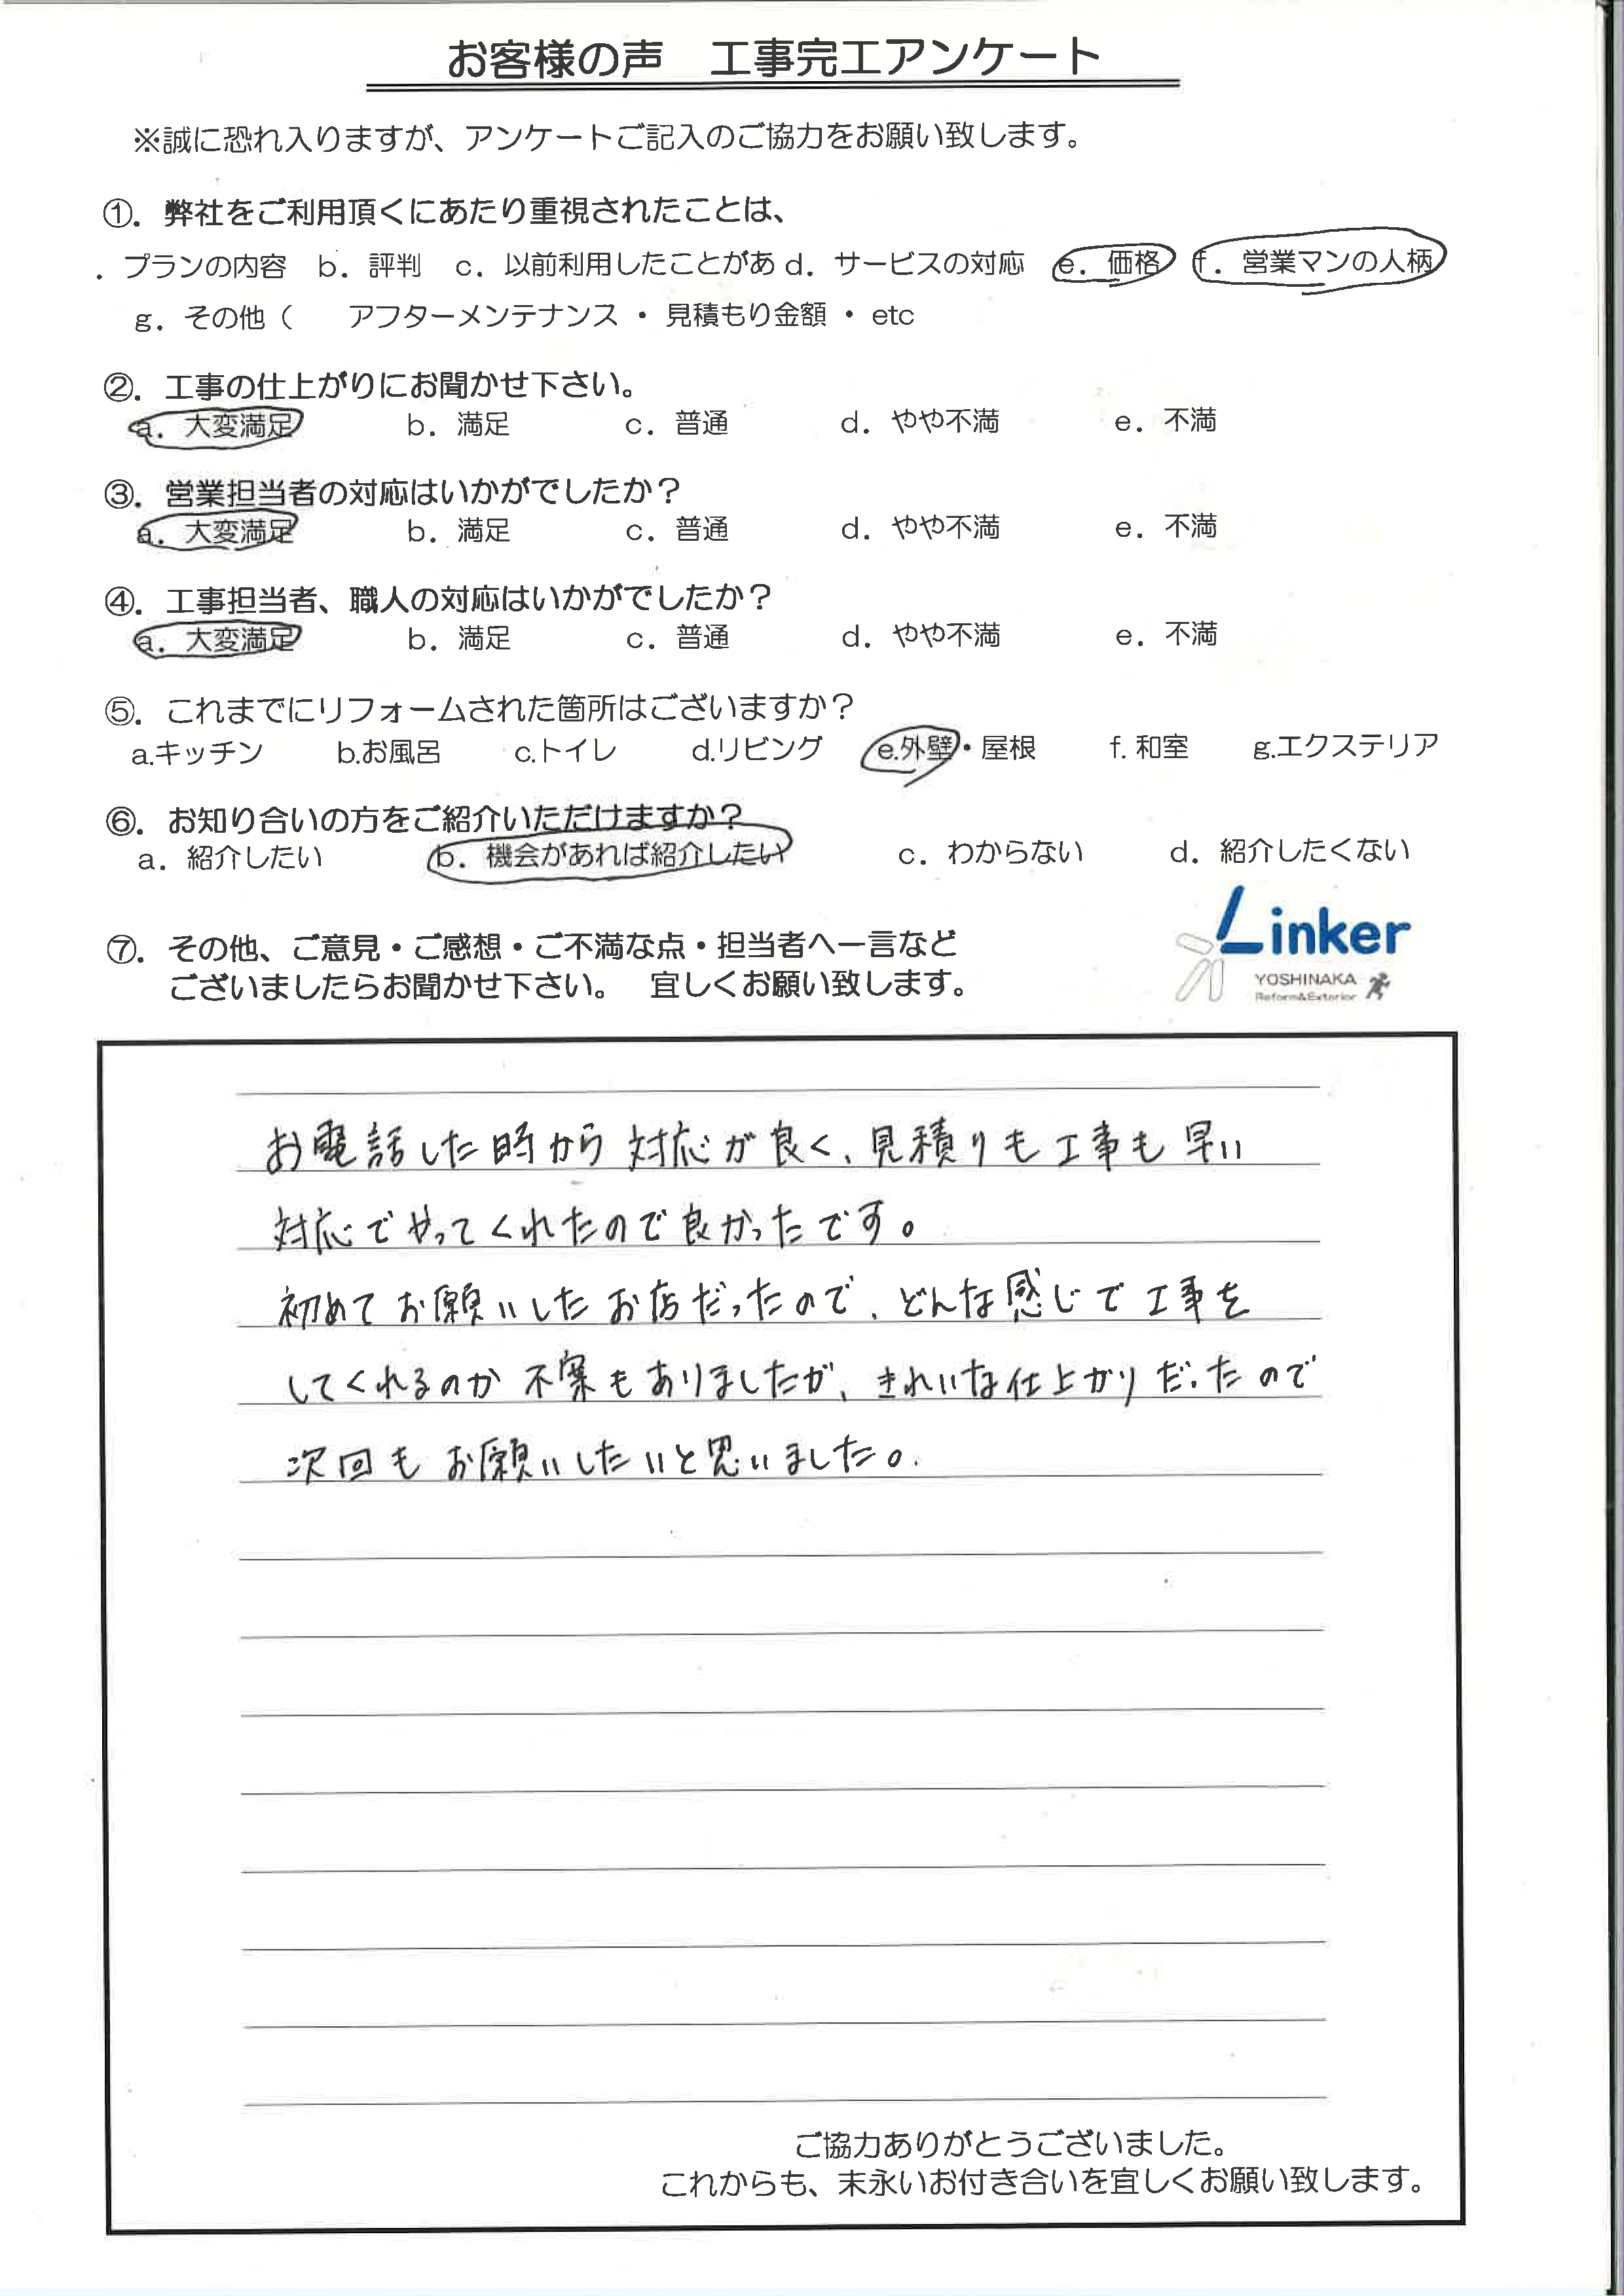 お客様の声　工事完工アンケート
※誠に恐れ入りますが、アンケートご記入のご協力をお願い致します。
①．弊社をご利用頂くにあたり重視されたことは、
．プランの内容　b．評判　c．以前利用したことがあ d．サービスの対応　e．価格　f．営業マンの人柄
g．その他（　　アフターメンテナンス ・ 見積もり金額 ・ etc
②．工事の仕上がりにお聞かせ下さい。
a．大変満足　b．満足　c．普通　d．やや不満　e．不満
③．営業担当者の対応はいかがでしたか？
a．大変満足　b．満足　c．普通　d．やや不満　e．不満
④．工事担当者、職人の対応はいかがでしたか？
a．大変満足　b．満足　c．普通　d．やや不満　e．不満
⑤．これまでにリフォームされた箇所はございますか？
a.キッチン　b.お風呂　c.トイレ　d.リビング　e.外壁・屋根　f. 和室　g.エクステリア
⑥．お知り合いの方をご紹介いただけますか？
a．紹介したい　b．機会があれば紹介したい　c．わからない　d．紹介したくない
⑦．その他、ご意見・ご感想・ご不満な点・担当者へ一言など
ございましたらお聞かせ下さい。　宜しくお願い致します。
Linker
YOSHINAKA
Reform&Exterior
お電話した時から対応が良く、見積りも工事も早い
対応でやってくれたので良かったです。
初めてお願いしたお店だったので、どんな感じで工事を
してくれるのか不案もありましたが、きれいな仕上がりだったので
次回もお願いしたいと思いました。
ご協力ありがとうございました。
これからも、末永いお付き合いを宜しくお願い致します。